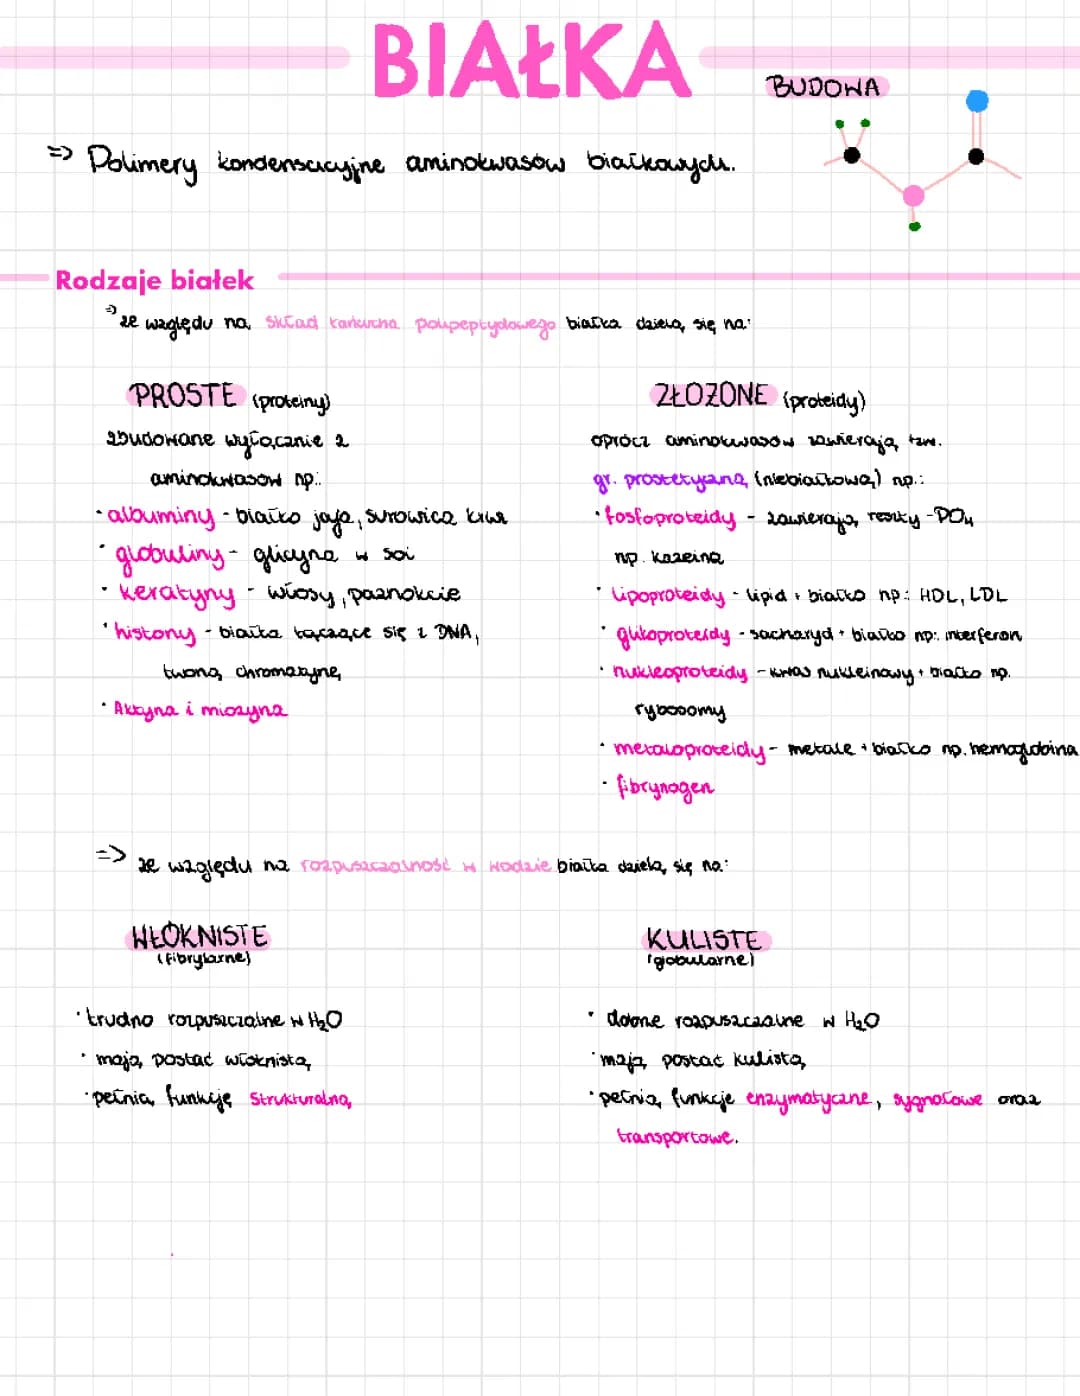 BIAŁKA
BUDOWA
=> Polimery kondensacyjne aminokwasów białkowych.
Rodzaje białek
=> ze względu na skład łańcucha polipeptydowego białka dzielą się na:
PROSTE (proteiny)
zbudowane wyłącznie z
aminokwasów np.:
• albuminy - białko jaja, surowica krwi
• globuliny - glicyna w soi
• keratyny - włosy, paznokcie
• histony - białka łączące się z DNA,
tworzą chromatynę
• Aktyna i miozyna
ZŁOŻONE (proteidy)
oprócz aminokwasów zawierają tzw.
gr. prostetyczną (niebiałkową) np.:
• fosfoproteidy - zawierają reszty -PO₄
np. kazeina
• lipoproteidy - lipid + białko np: HDL, LDL
• glikoproteidy - sacharyd + białko np: interferon
• nukleoproteidy - kwas nukleinowy + białko np.
rybosomy
• metaloproteidy - metale + białko np. hemoglobina
• fibrynogen
=> ze względu na rozpuszczalność w wodzie białka dzielą się na:
WŁÓKNISTE
(fibrylarne)
• trudno rozpuszczalne w H₂O
• mają postać włóknistą
• pełnią funkcję strukturalną
KULISTE
(globularne)
• dobrze rozpuszczalne w H₂O
• mają postać kulistą
• pełnią funkcje enzymatyczne, sygnałowe oraz
transportowe.